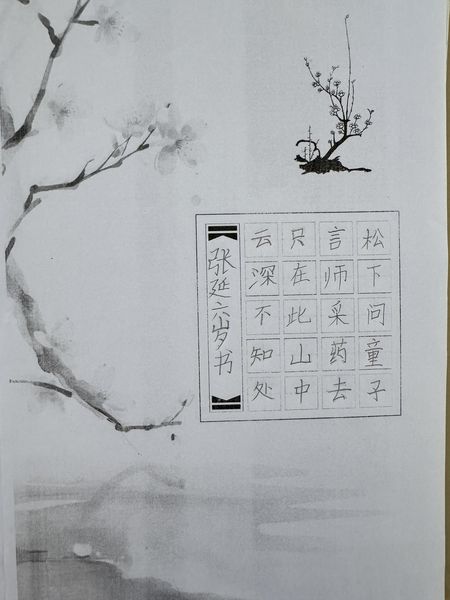 松下问童子
言师采药去
只在此山中
云深不知处
张延六岁书